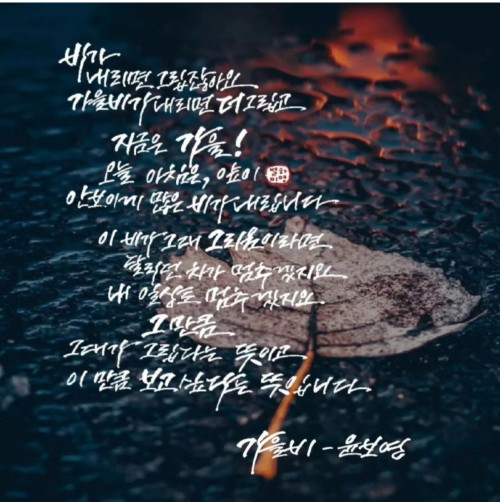 비가
내리면 그립잖아요
가을비가 내리면 더 그립고
지금은 가을!
오늘 아침은, 앞이
안보이게 많은 비가 내립니다
이 비가 그대 그리움이라면
달리던 차가 멈추겠지요
내 일상도 멈추겠지요
그만큼
그대가 그립다는 뜻이고
이 만큼 보고싶다는 뜻입니다
가을비 - 윤보영